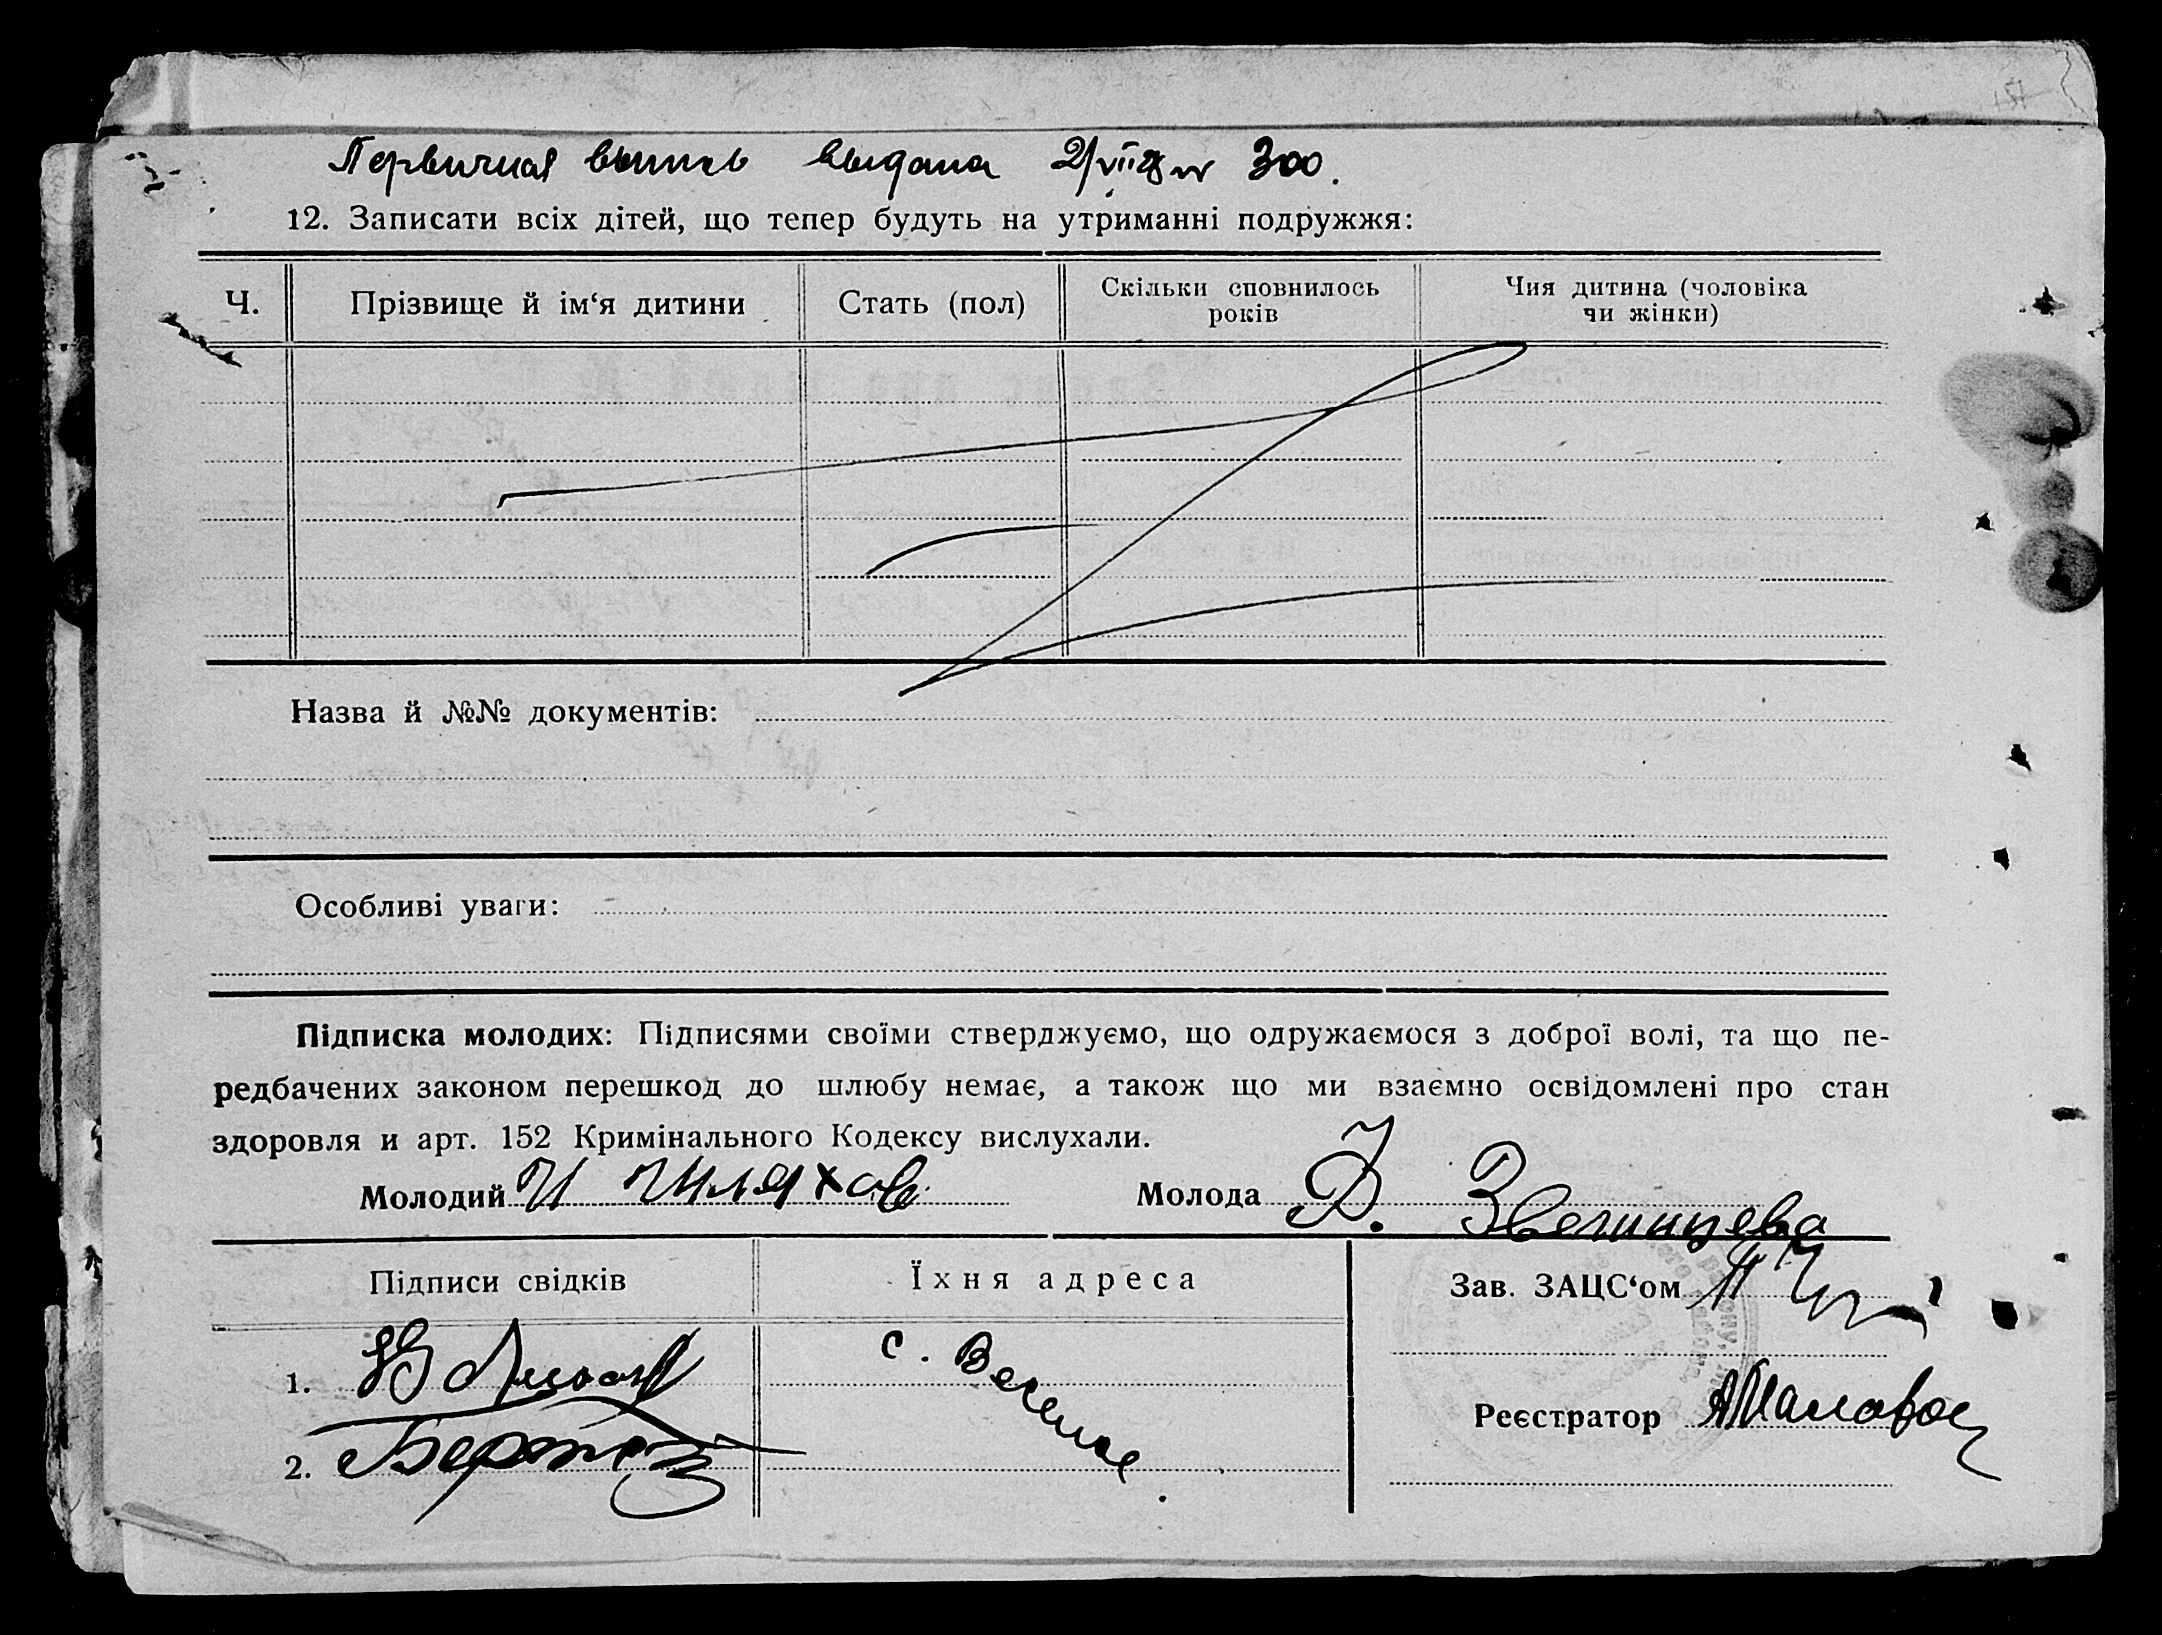 Первичная выпись выдана 2/VII 28 № 300.
12. Записати всіх дітей, що тепер будуть на утриманні подружжя:
Ч. Прізвище й ім‘я дитини Стать (пол) Скільки сповнилось років Чия дитина (чоловіка чи жінки)
Назва й №№ документів:
Особливі уваги:
Підписка молодих: Підписями своїми стверджуємо, що одружаємося з доброї волі, та що пе-
редбачених законом перешкод до шлюбу немає, а також що ми взаємно освідомлені про стан
здоровля и арт. 152 Кримінального Кодексу вислухали.
Молодий И Шляхов Молода Ф. Звегинцева
Підписи свідків Їхня адреса Зав. ЗАЦС‘ом
1. с. Веселое.
Реєстратор
2.